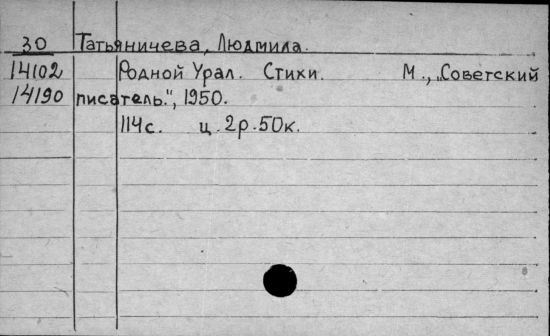 30 Татьяничева, Людмила.
14102 Родной Урал. Стихи. М., „Советский
14190 писатель.", 1950.
114с. ц. 2р.50к.